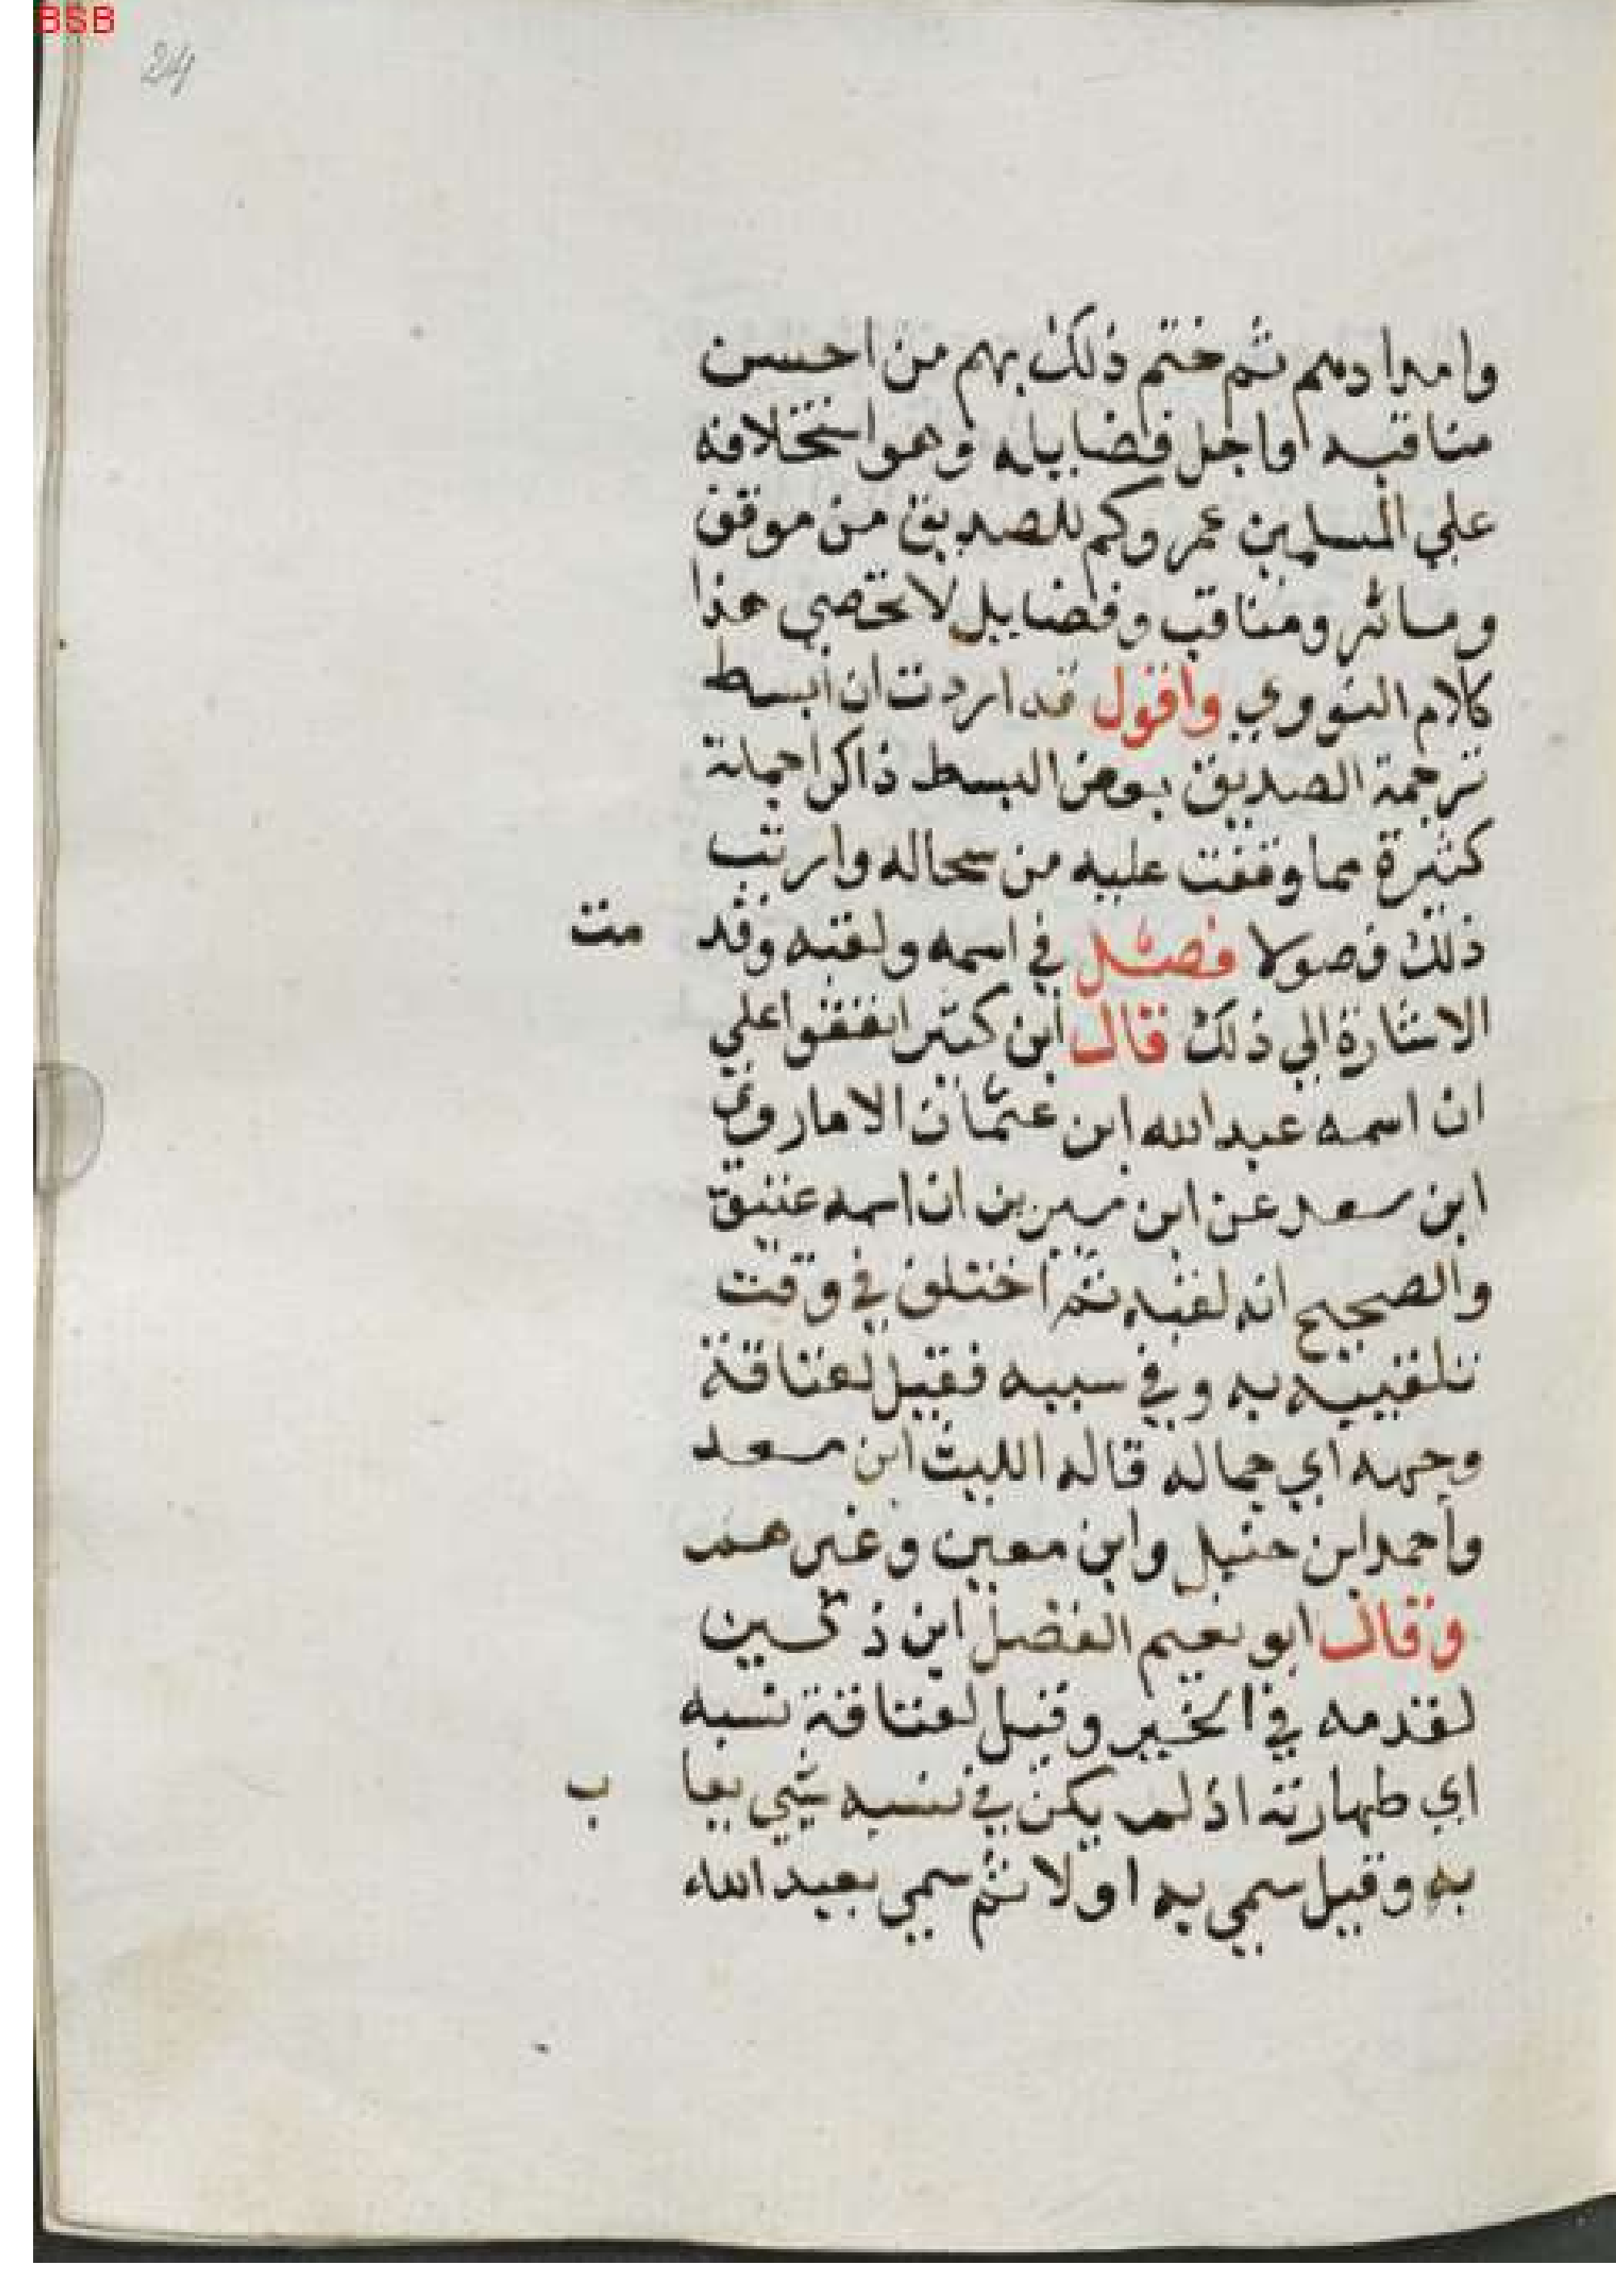 BSB
24
وامدادهم ثم ختم ذلك بهم من احسن
مناقبه واجل فضايله وهو استخلافه
علي المسلمين عمر وكم للصديق من موقف
وماثر ومناقب وفضايل لا تحصي هذا
كلام النووي واقول قد اردت ان ابسط
ترجمة الصديق بعض البسط ذاكرا جملة
كثيرة مما وقفت عليه من حاله وارتب
ذلك فصولا فصل في اسمه ولقبه وقد مت
الاشارة الي ذلك قال ابن كثير اتفقوا علي
ان اسمه عبد الله ابن عثمان الا ما روي
ابن سعد عن ابن سيرين ان اسمه عتيق
والصحيح انه لقبه ثم اختلف في وقت
تلقيبه به وفي سببه فقيل لعتاقة
وجهه اي جماله قاله الليث ابن سعد
واحمد ابن حنبل وابن معين وغيرهم
وقال ابو نعيم الفضل ابن دكين
لقدمه في الخير وقيل لعتاقة نسبه
اي طهارته اذ لم يكن في نسبه شيي يعا ب
به وقيل سمي به اولا ثم سمي بعبد الله